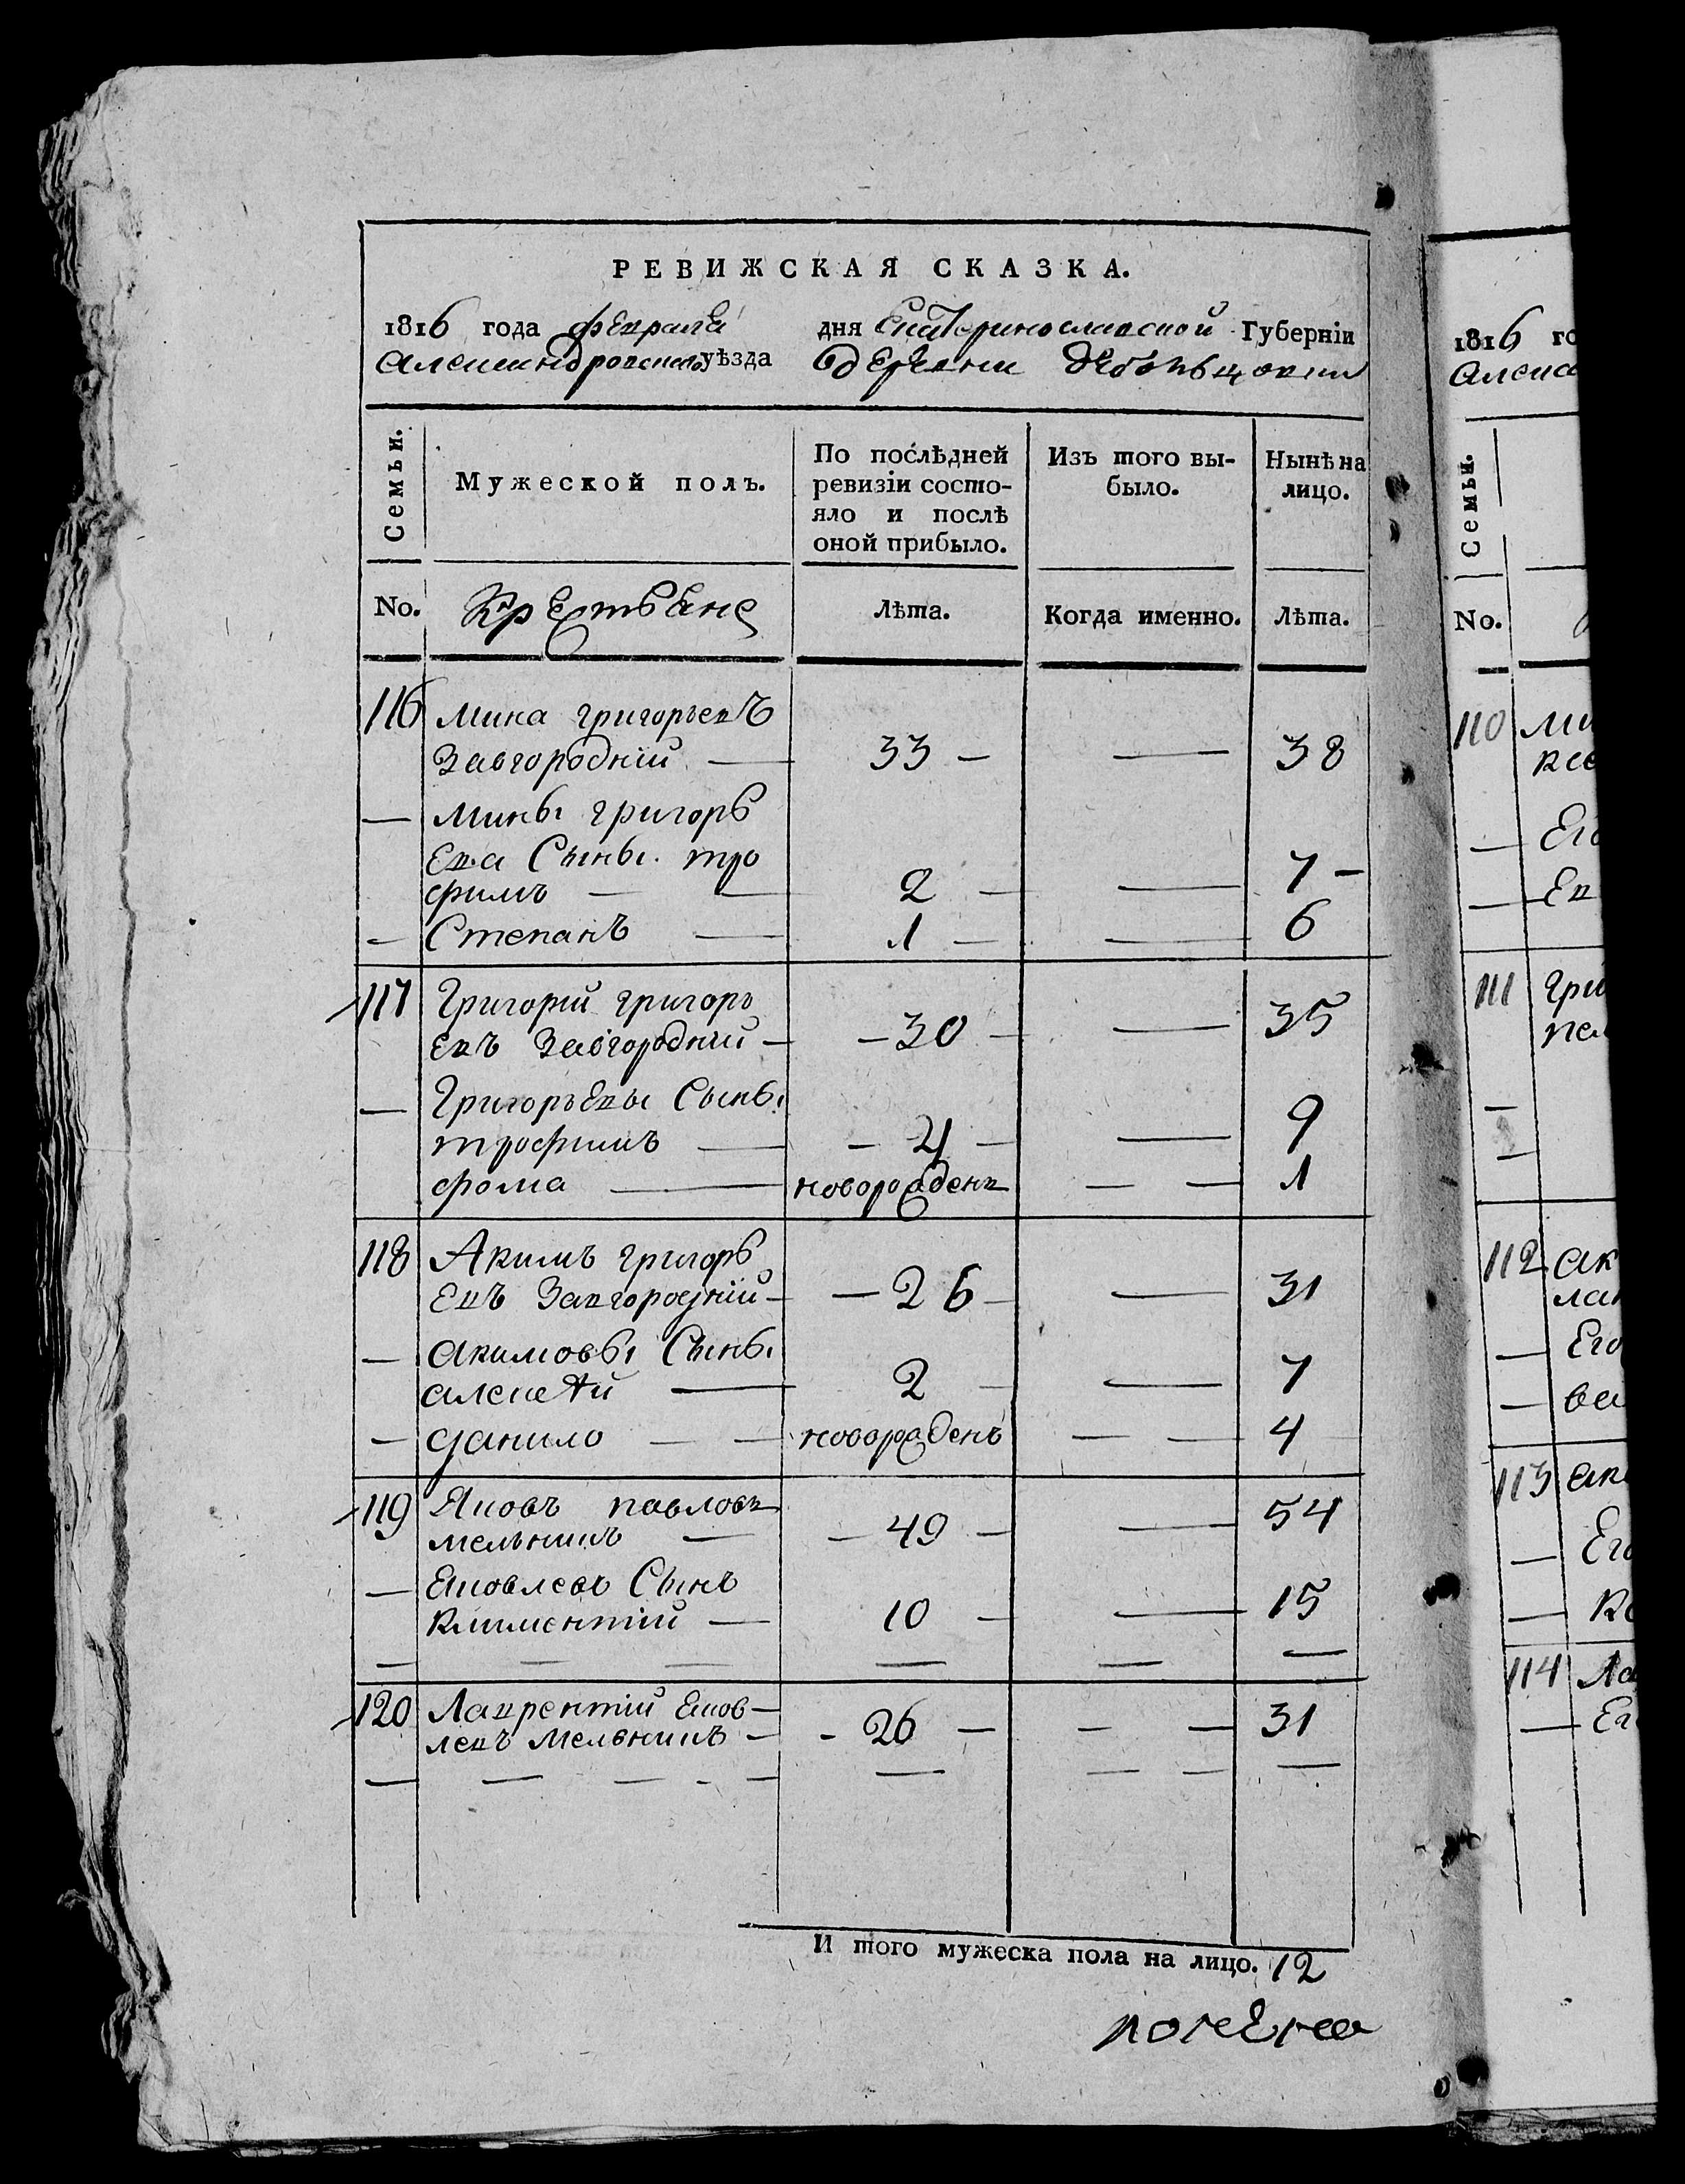 РЕВИЖСКАЯ СКАЗКА.
1816 года февраля дня Екатеринославской Губерніи
Александровского уѣзда деревни
Семьи.
Мужеской полъ.
По послѣдней ревизіи состояло и послѣ оной прибыло.
Изъ того выбыло.
Нынѣ на лицо.
No. Крестьяне Лѣта. Когда именно. Лѣта.
116 Мина григорьевъ
Завгородній — 33 — — 38
— Мины григорь
ева Сыны. тро
фимъ — — 2 — — 7 —
— Степанъ — 1 — — 6
117 Григорій григорь
евъ Завгородній — — 30 — — 35
— Григорьевы Сыны
трофимъ — — 4 — — 9
фома — новорожденъ — — 1
118 Акимъ григорь
евъ Завгородній — — 26 — — 31
— акимовы Сыны
алексѣй — 2 — — 7
— данило — — новорожденъ — — 4
119 Яковъ павловъ
мельникъ — — 49 — — 54
— Яковлевъ Сынъ
климентій — 10 — — 15
— — — — — —
120 Лаврентій Яков—
левъ Мельникъ — - 26 — — — 31
— — — - — — — — —
И того мужеска пола на лицо. 12
1816 го
Алекса
Семьи.
No.
110 Ми
ксе
— Его
— Ев
111 Гри
пел
—
—
112 Ак
лан
— Его
— ва
113 Ак
— Его
— Ко
114 Ла
— Ег